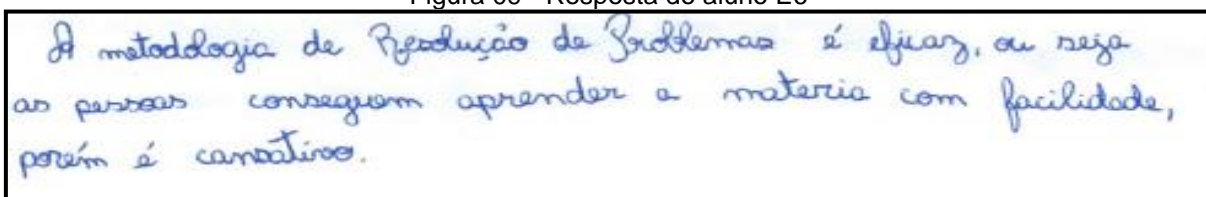 A metodologia de Resolução de Problemas é eficaz, ou seja
as pessoas conseguem aprender a materia com facilidade,
porém é cansativo.